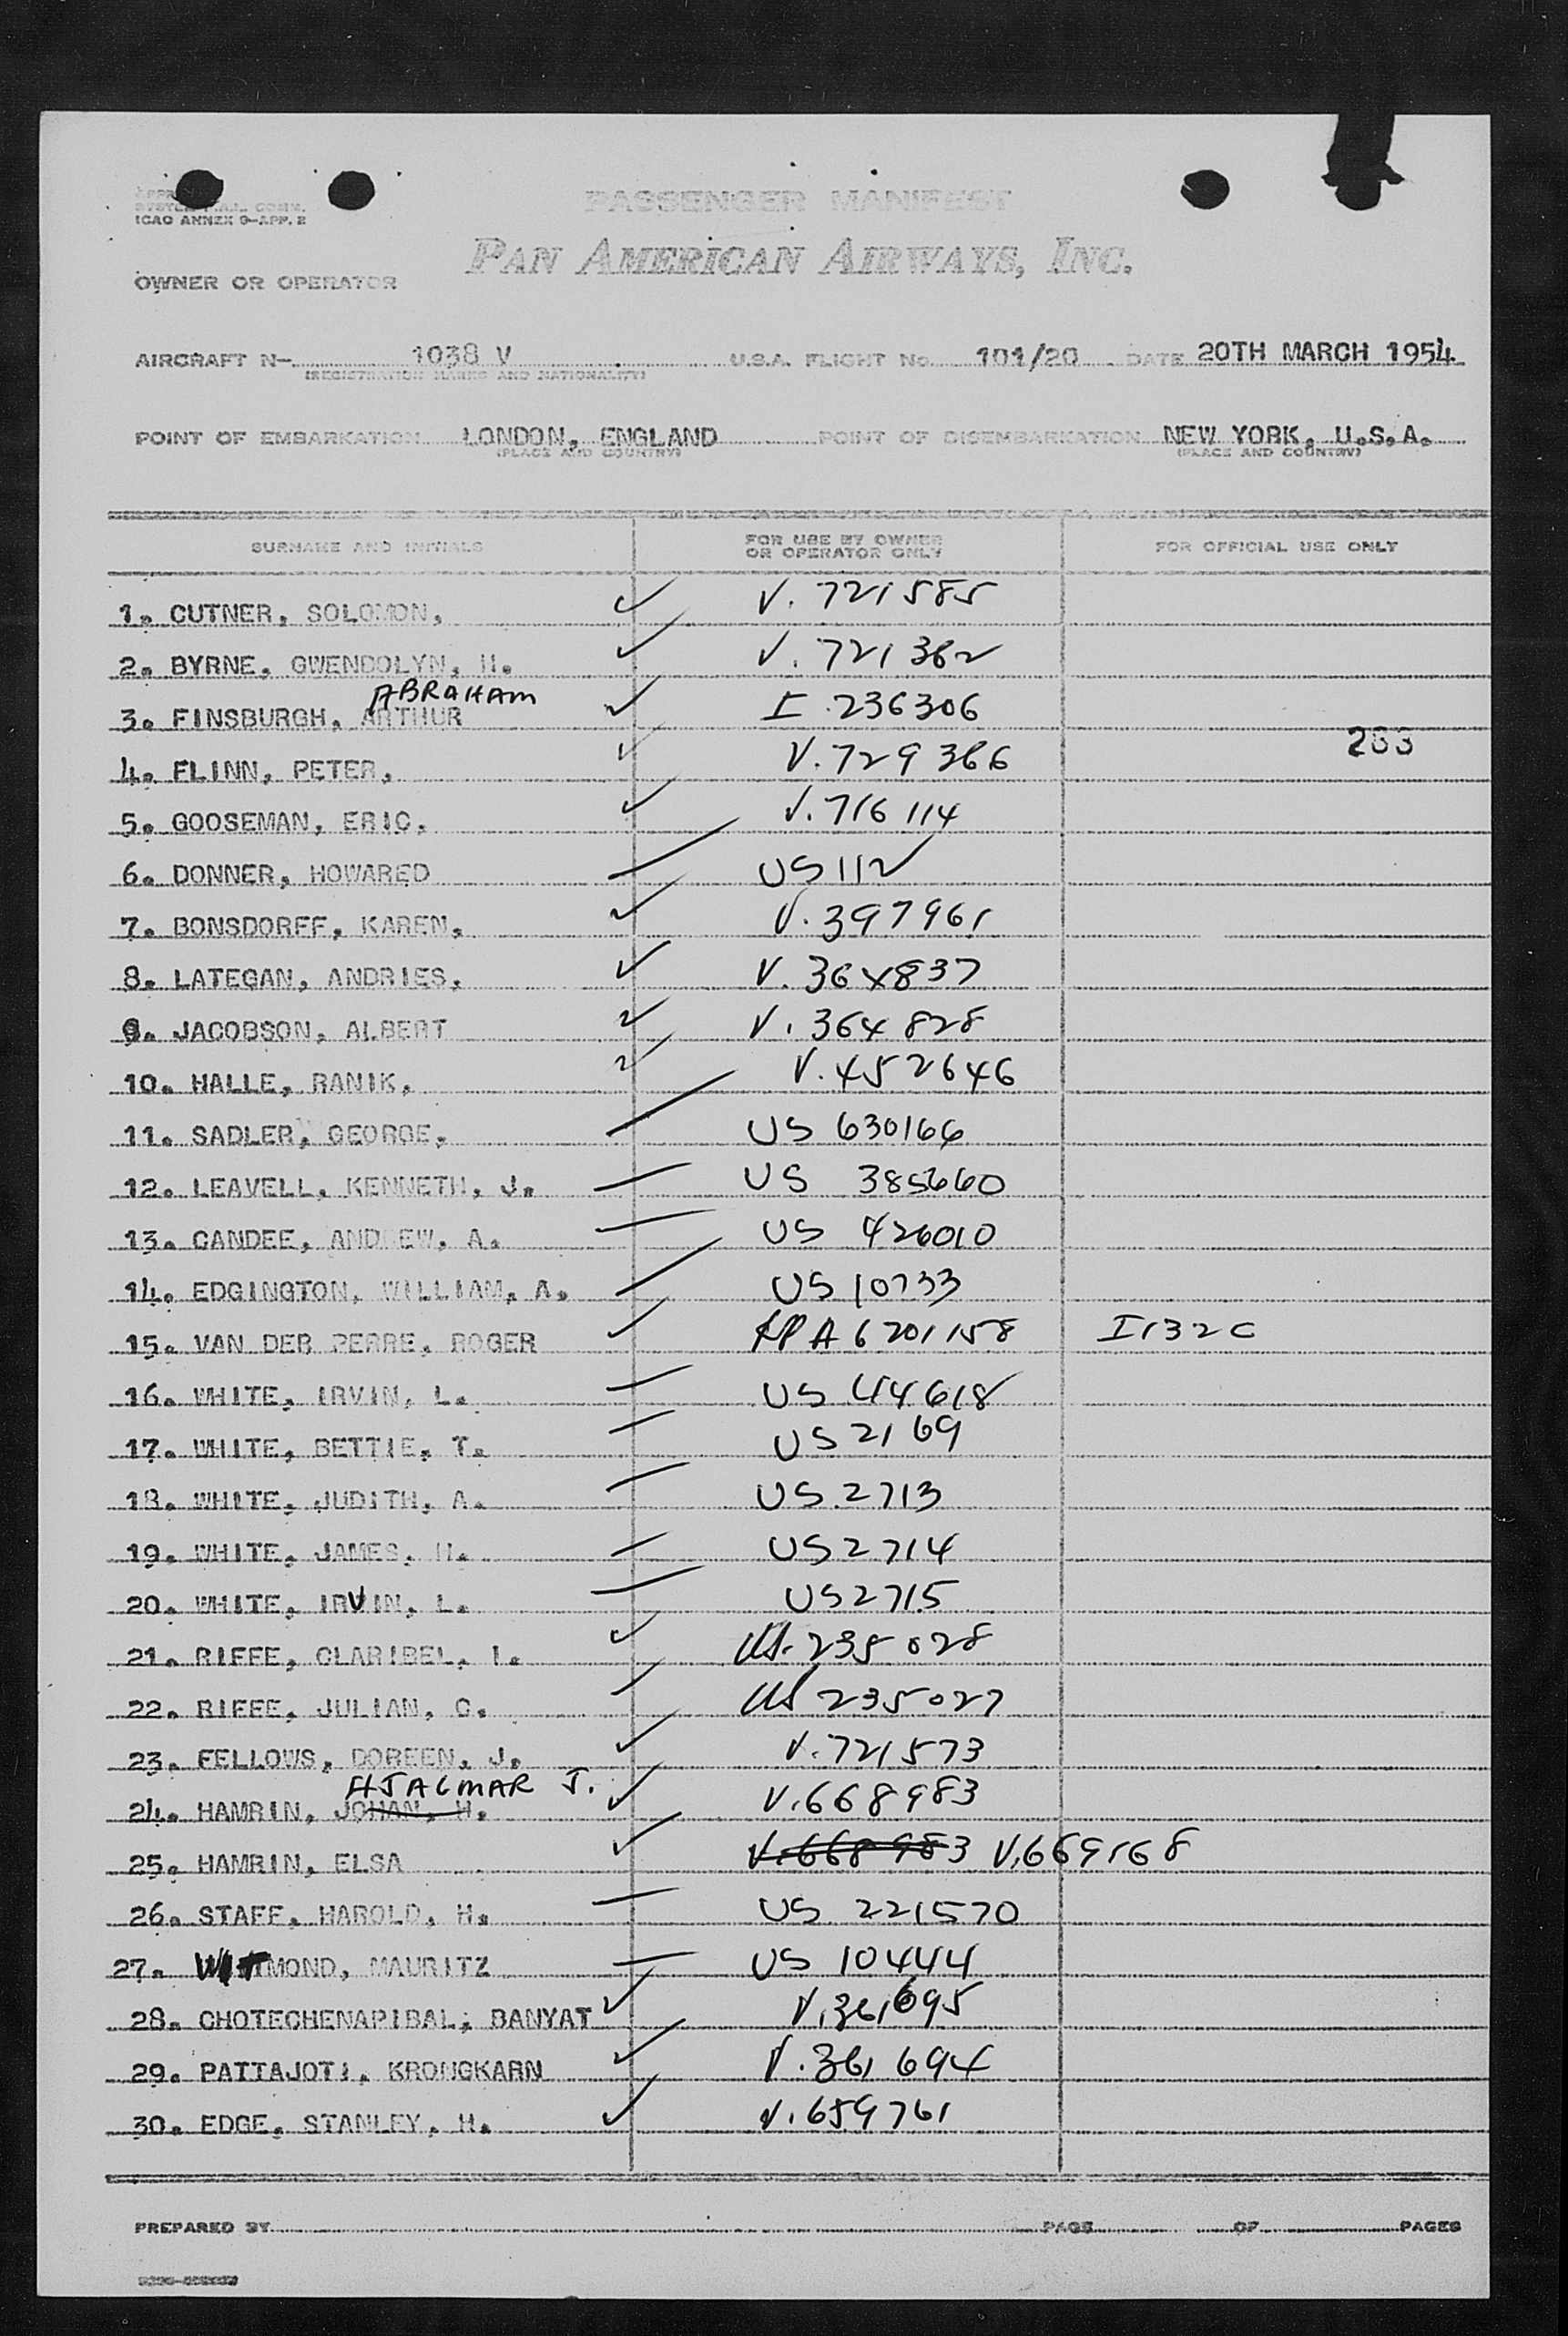 ICAO ANNEX 9-APP. 2
PASSENGER MANIFEST
PAN AMERICAN AIRWAYS, INC.
OWNER OR OPERATOR
AIRCRAFT N- 1038 V U.S.A. FLIGHT No. 101/20 DATE 20TH MARCH 1954
(REGISTRATION MARKS AND NATIONALITY)
POINT OF EMBARKATION LONDON, ENGLAND POINT OF DISEMBARKATION NEW YORK, U.S.A.
(PLACE AND COUNTRY) (PLACE AND COUNTRY)
SURNAME AND INITIALS FOR USE BY OWNER OR OPERATOR ONLY FOR OFFICIAL USE ONLY
1. CUTNER, SOLOMON, ✓ V. 721585
2. BYRNE, GWENDOLYN, H. ✓ V. 721382
ABRAHAM
3. FINSBURGH, ARTHUR ✓ I. 236306
263
4. FLINN, PETER, ✓ V. 729386
5. GOOSEMAN, ERIC, ✓ V. 716114
6. DONNER, HOWARED US 112
7. BONSDORFF, KAREN, ✓ V. 397961
8. LATEGAN, ANDRIES, ✓ V. 364837
9. JACOBSON, ALBERT ✓ V. 364828
10. HALLE, RANIK, ✓ V. 452646
11. SADLER, GEORGE, US 630166
12. LEAVELL, KENNETH, J. US 385660
13. CANDEE, ANDREW, A. US 426010
14. EDGINGTON, WILLIAM, A. US 10733
15. VAN DER PERRE, ROGER ✓ A 6201158 I 132 C
16. WHITE, IRVIN, L. US 44618
17. WHITE, BETTIE, T. US 2169
18. WHITE, JUDITH, A. US 2713
19. WHITE, JAMES, H. US 2714
20. WHITE, IRVIN, L. US 2715
21. RIFFE, CLARIBEL, I. ✓ US. 235028
22. RIFFE, JULIAN, C. US 235027
23. FELLOWS, DOREEN, J. ✓ V. 721573
HJALMAR J.
24. HAMRIN, JOHAN, H. ✓ V. 668983
25. HAMRIN, ELSA ✓ V. 668983 V. 669168
26. STAFF, HAROLD, H. US 221570
27. WITMOND, MAURITZ US 10444
28. CHOTECHENAPIBAL, BANYAT ✓ V. 361695
29. PATTAJOTI, KRONGKARN ✓ V. 361694
30. EDGE, STANLEY, H. ✓ V. 659761
PREPARED BY PAGE OF PAGES